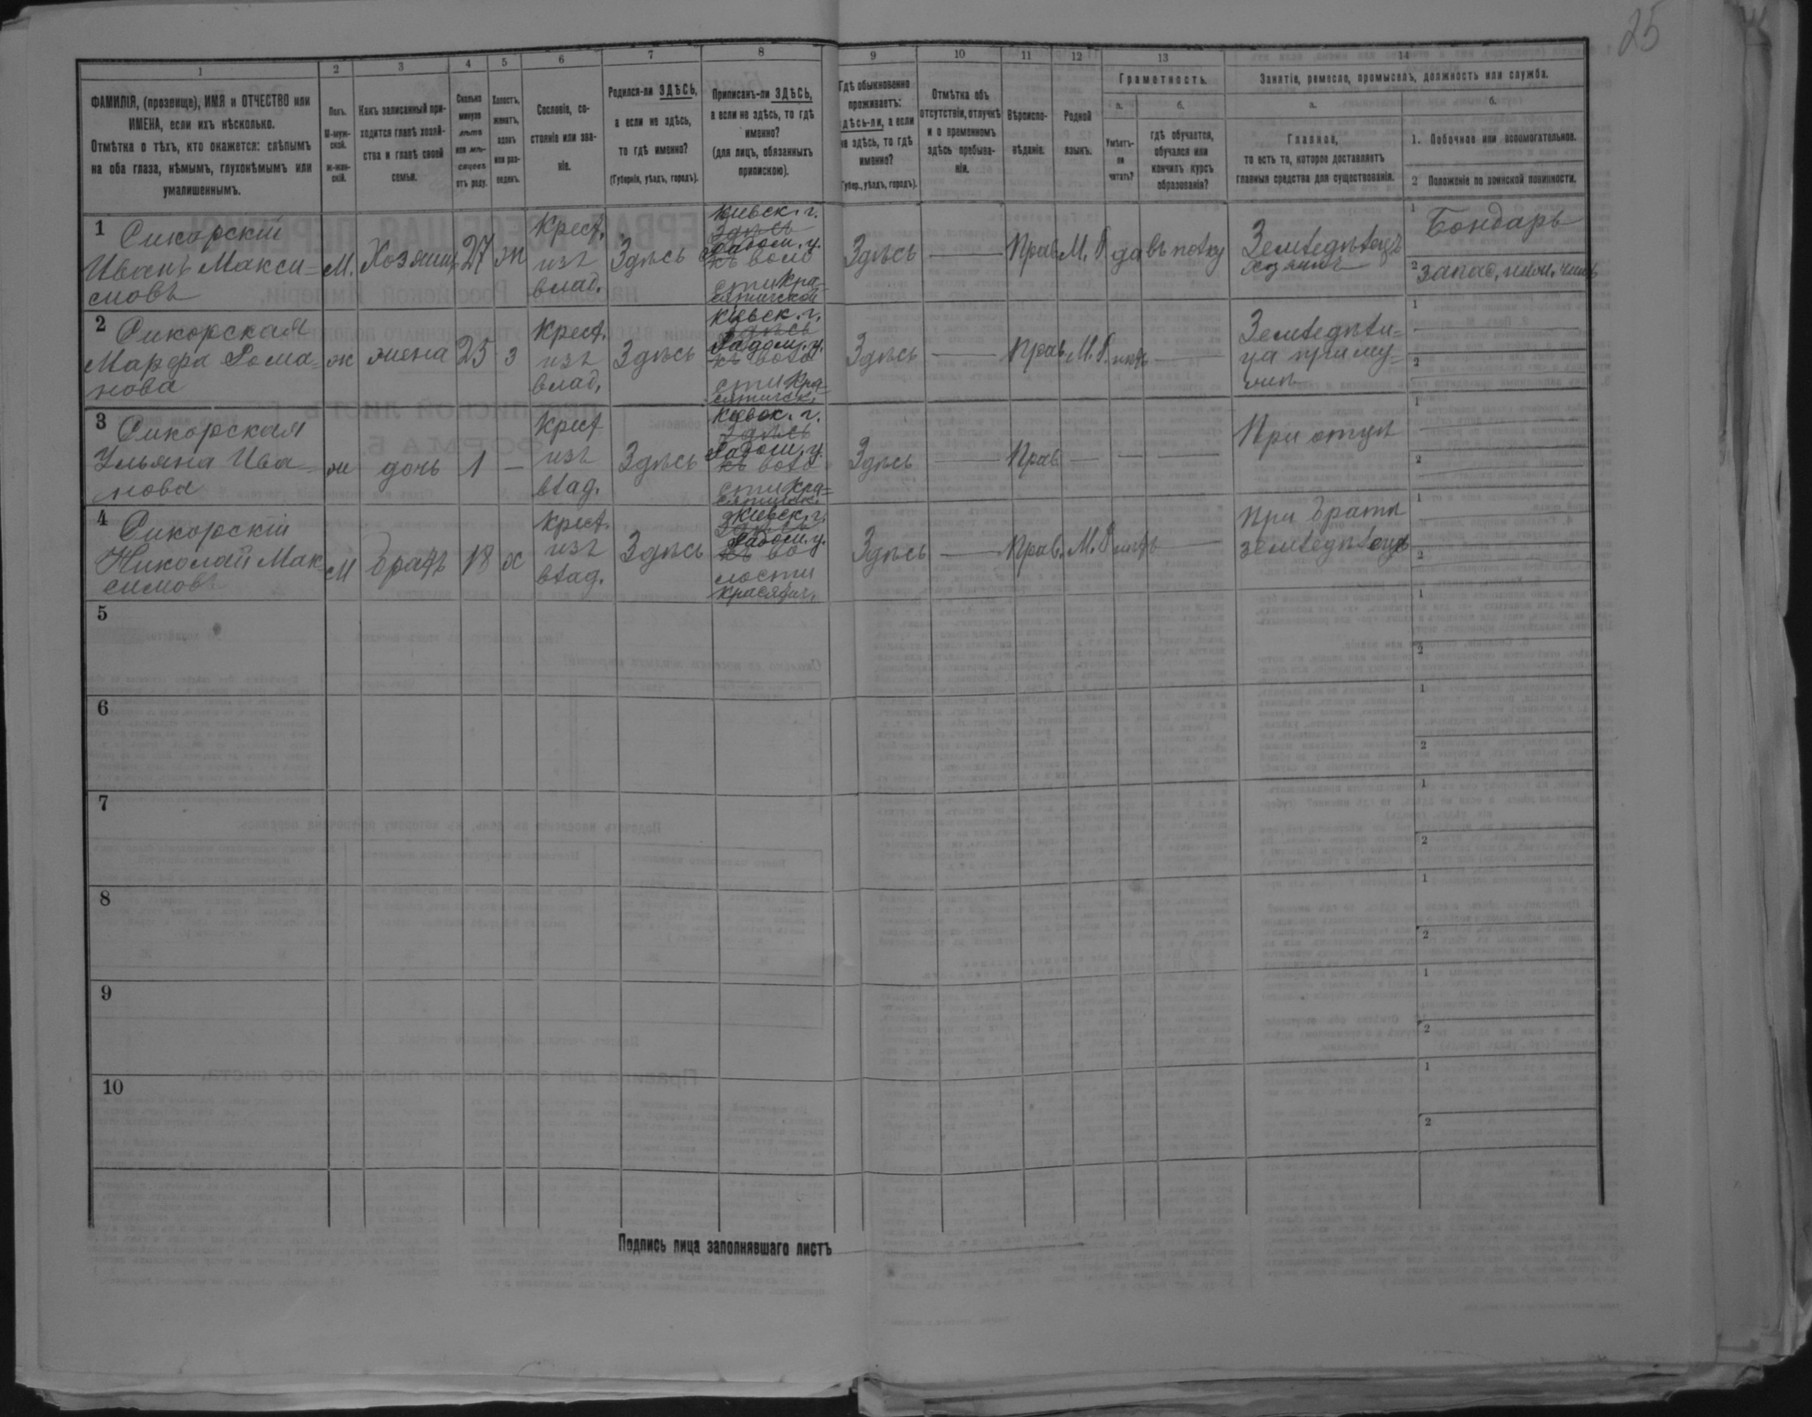 25
1 2 3 4 5 6 7 8 9 10 11 12 13 14
ФАМИЛІЯ, (прозвище), ИМЯ и ОТЧЕСТВО или
ИМЕНА, если ихъ нѣсколько.
Отмѣтка о тѣхъ, кто окажется: слѣпымъ
на оба глаза, нѣмымъ, глухонѣмымъ или
умалишеннымъ.
Полъ.
М-муж-
ской.
Ж-жен-
скій.
Какъ записанный при-
ходится главѣ хозяй-
ства и главѣ своей
семьи.
Сколько
минуло
лѣтъ
или мѣ-
сяцевъ
отъ роду.
Холостъ,
женатъ,
вдовъ
или раз-
веденъ.
Сословіе, со-
стояніе или зва-
ніе.
Родился-ли ЗДѢСЬ,
а если не здѣсь,
то гдѣ именно?
(Губернія, уѣздъ, городъ).
Приписанъ-ли ЗДѢСЬ,
а если не здѣсь, то гдѣ
именно?
(для лицъ, обязанныхъ
припискою).
Гдѣ обыкновенно
проживаетъ:
здѣсь-ли, а если
не здѣсь, то гдѣ
именно?
(Губер., уѣздъ, городъ).
Отмѣтка объ
отсутствіи, отлучкѣ
и о временномъ
здѣсь пребыва-
ніи.
Вѣроиспо-
вѣданіе.
Родной
языкъ.
Грамотность.
а.
Умѣетъ-
ли
читать?
б.
гдѣ обучается,
обучался или
кончилъ курсъ
образованія?
Занятіе, ремесло, промыселъ, должность или служба.
а.
Главное,
то есть то, которое доставляетъ
главныя средства для существованія.
б.
1. Побочное или вспомогательное.
2 Положеніе по воинской повинности.
1 Сикорскій
Иванъ Макси-
мовъ
М. Хозяинъ 27 ж
Крест.
изъ
влад.
Здѣсь
Кіевск. г.
Здѣсь
Радом. у.
къ воло
сти Кра-
сятичской
Здѣсь Прав. М.Р да въ полку
Земледѣлецъ
хозяинъ
1 Бондарь
2 запас.
2 Сикорская
Марфа Рома-
нова
ж жена 25 з
Крест.
изъ
влад.
Здѣсь
Кіевск. г.
Здѣсь
Радом. у.
къ воло
сти Кра-
Здѣсь Прав. М.Р. нѣтъ
1
2
3 Сикорская
Ульяна Ива-
нова
ж дочь 1
Крест
изъ
влад.
Здѣсь
Кіевск. г.
Здѣсь
Радом. у.
къ воло
сти Кра-
Здѣсь Прав
При отцѣ
1
2
4 Сикорскій
Николай Мак-
симовъ
М братъ 18 х
Крест.
изъ
влад.
Здѣсь
Кіевск. г.
Здѣсь
Радом. у.
къ во-
лости
Здѣсь Прав. М.Р нѣтъ
При братѣ
земледѣлецъ
1
2
5 1
2
6 1
2
7 1
2
8 1
2
9 1
2
10 1
2
Подпись лица заполнявшаго листъ